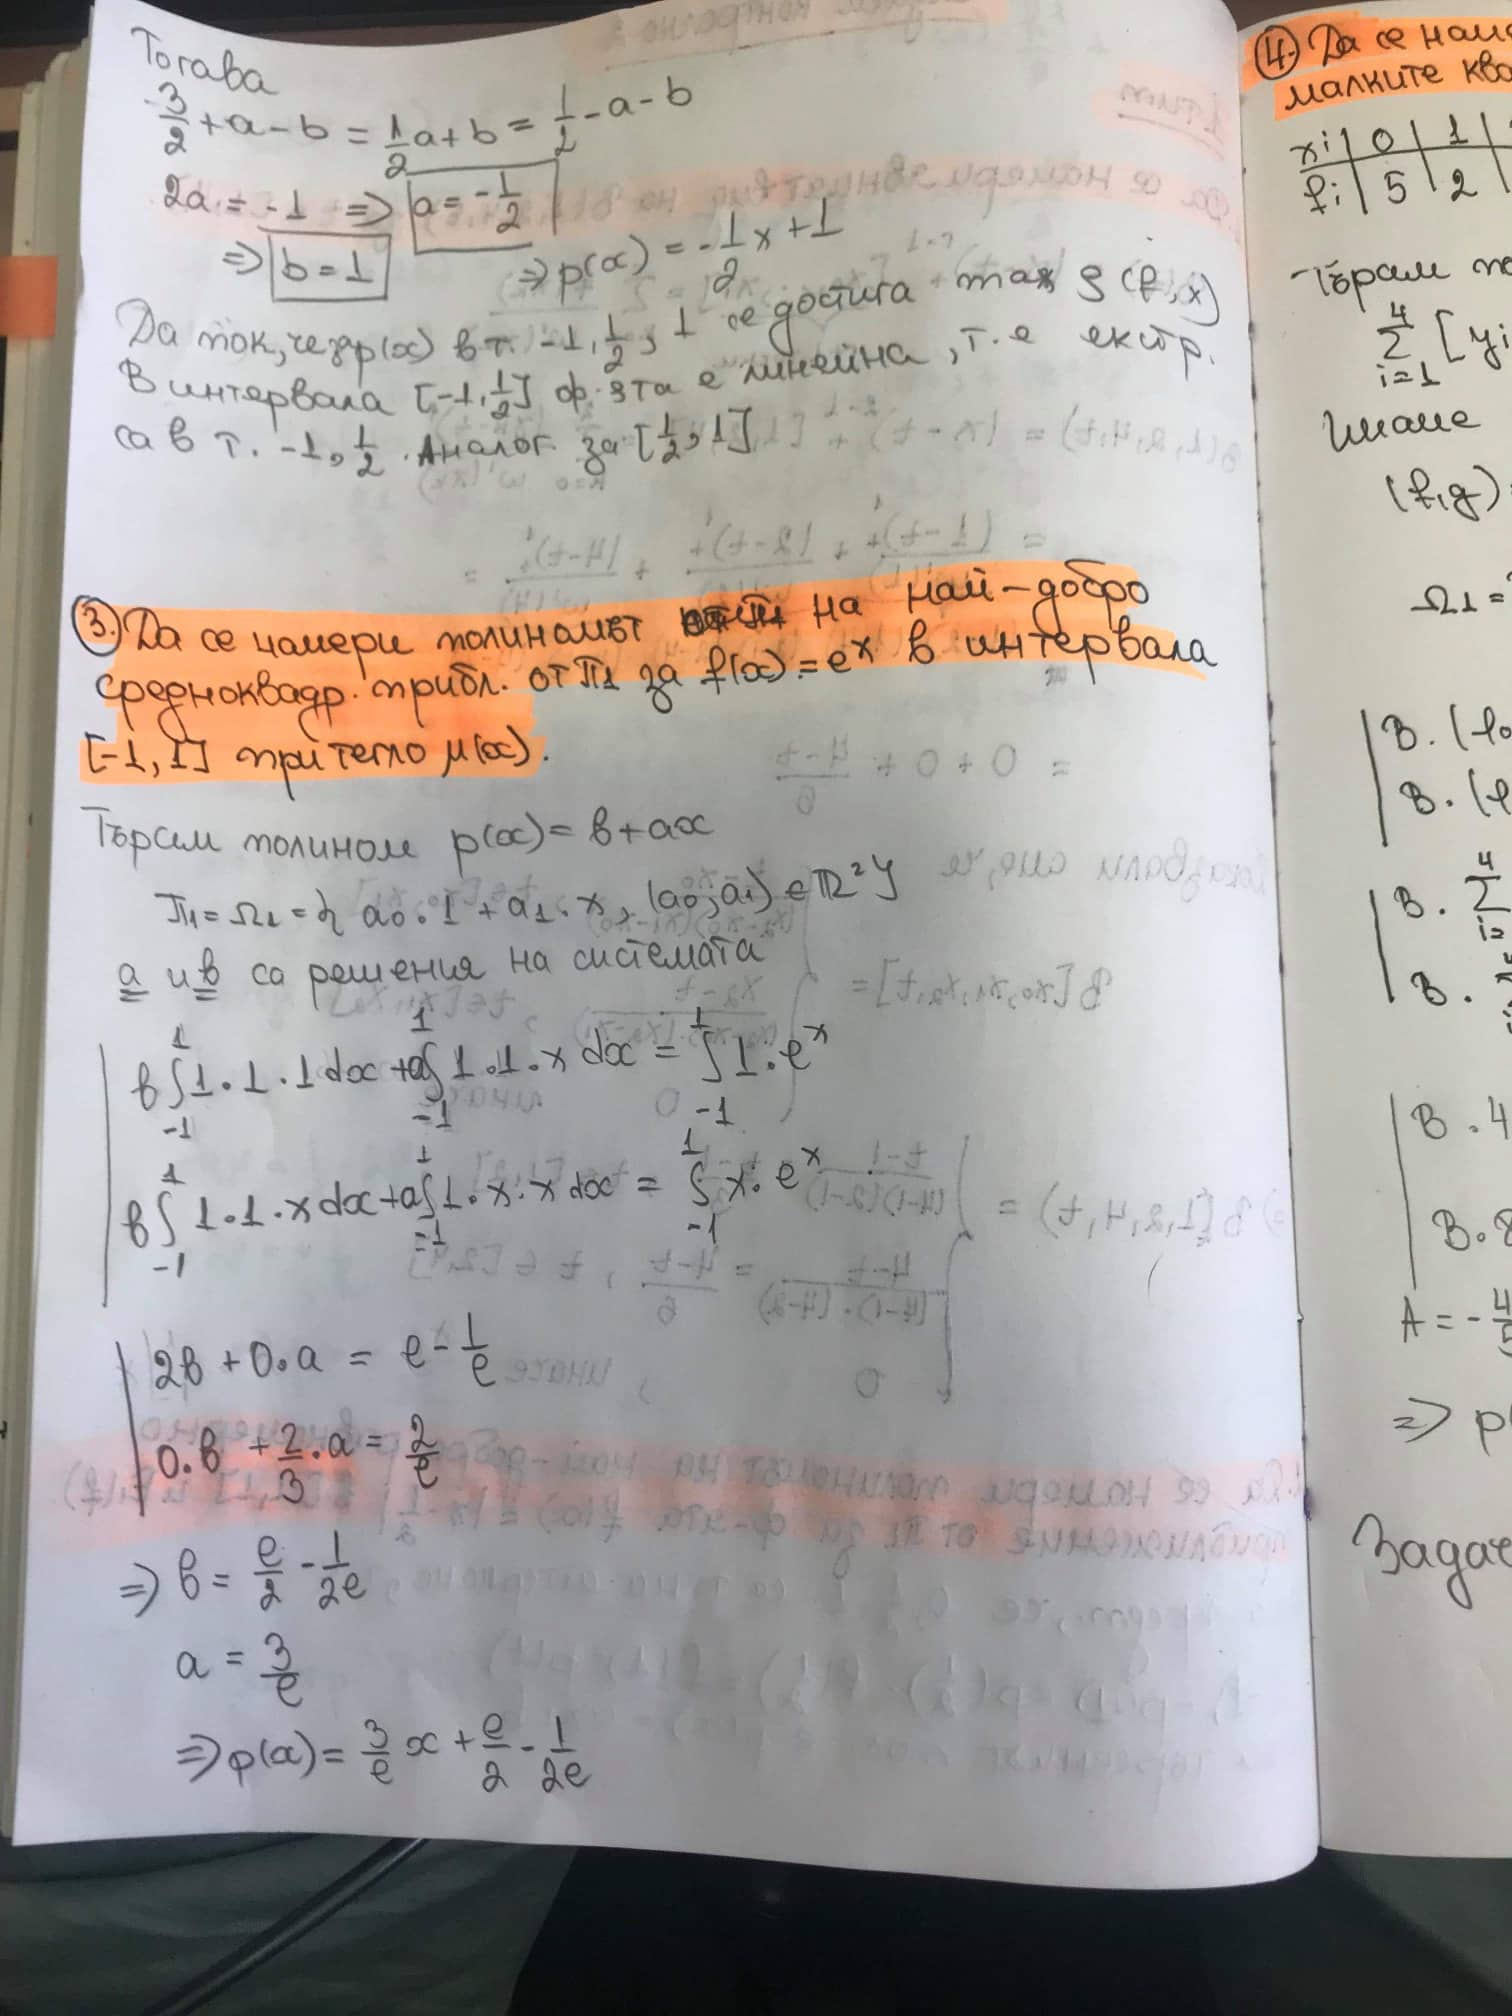 Тогава
3/2 + a - b = 1/2 a + b = 1/2 - a - b
2a = -1 => a = -1/2
=> b = 1 => p(x) = -1/2 x + 1
Да ток, че за p(x) в т. -1, 1/2, 1 се достига max ρ(f, x)
В интервала [-1, 1/2] ф-ята е линейна, т.е екстр.
са в т. -1, 1/2. Аналог. за [1/2, 1]
3. Да се намери полиномът на най-добро
средноквадр. прибл. от π1 за f(x) = e^x в интервала
[-1, 1] при тегло μ(x).
Търсим полином p(x) = b + ax
π1 = Ω1 = { a0.1 + a1.x, (a0; a1) ∈ R^2 }
a и b са решения на системата
b ∫_{-1}^{1} 1.1.1 dx + a ∫_{-1}^{1} 1.1.x dx = ∫_{-1}^{1} 1.e^x
b ∫_{-1}^{1} 1.1.x dx + a ∫_{-1}^{1} 1.x.x dx = ∫_{-1}^{1} x.e^x
2b + 0.a = e - 1/e
0.b + 2/3.a = 2/e
=> b = e/2 - 1/2e
a = 3/e
=> p(x) = 3/e x + e/2 - 1/2e
4. Да се
малките
xi | 0 | 1 |
fi | 5 | 2
Търсим
∑_{i=1}^{4} [yi
Имаме
(f, g)
Ω1 =
B.
B.
B. ∑
B.
B . 4
B.8
A = - 4/5
=> p